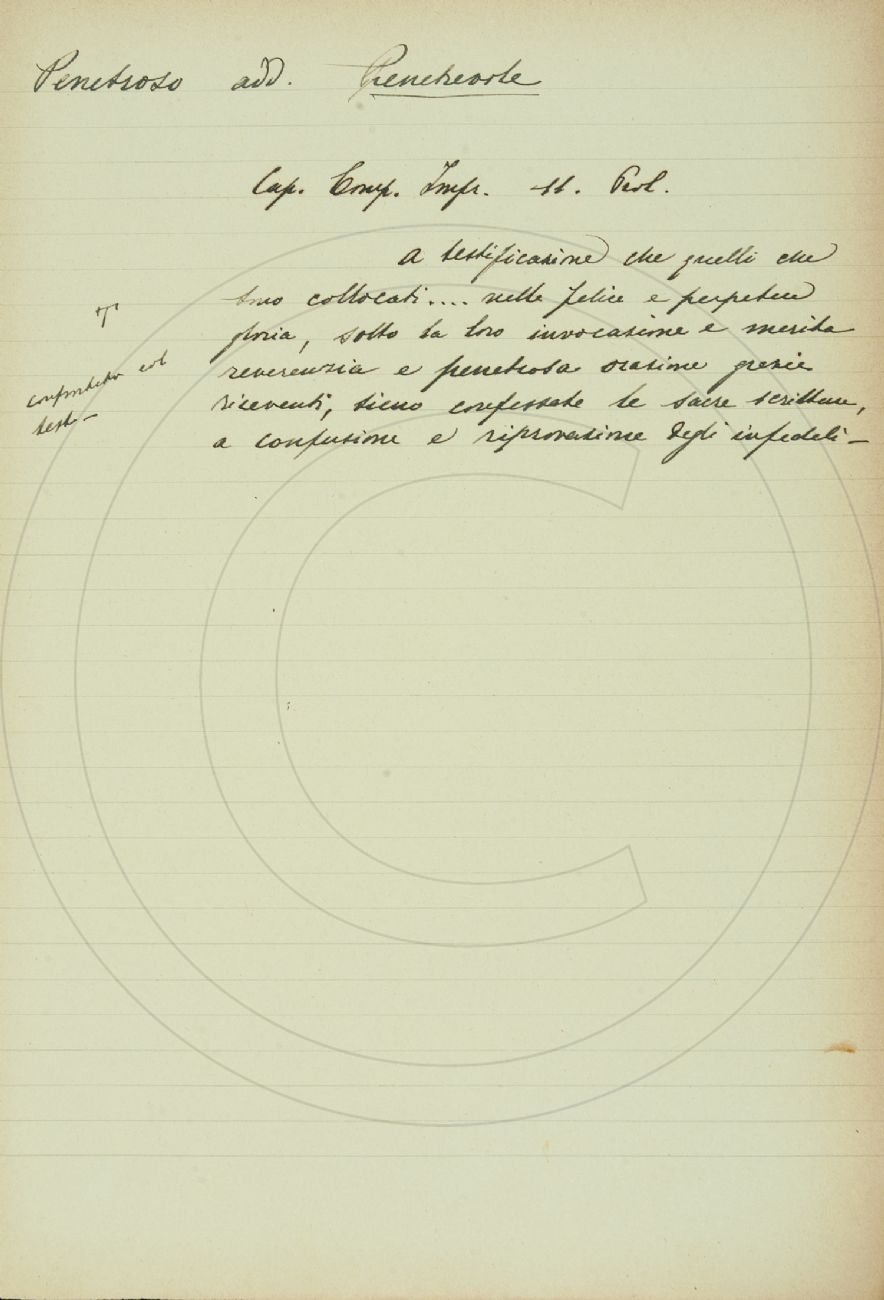 Penetroso add. Penetrevole
Cap. Comp. Impr. 11. Prol.
A testificazione che quelli che
sono collocati.... nella felice e perpetua
gloria, sotto la loro invocazione e merita
reverenzia e penetrosa orazione grazie
riceventi, sieno confessate le sacre scritture,
a confusione e riprovazione degli infedeli —
T
confrontato col
test —